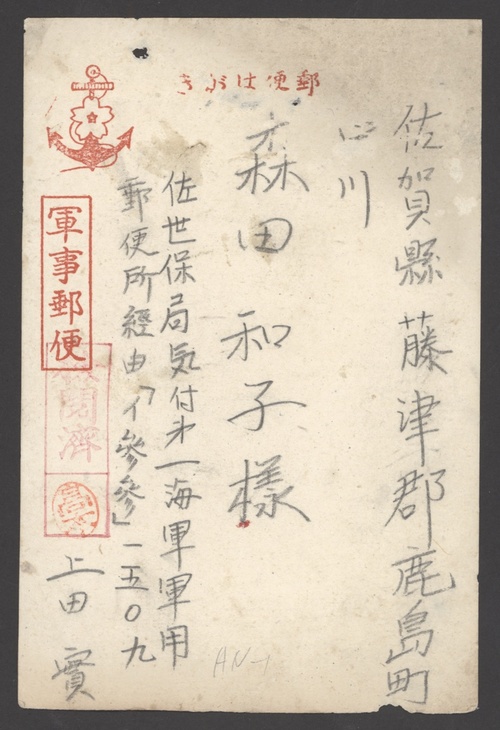 郵便はがき
佐賀縣藤津郡鹿島町
森田和子様
佐世保局気付才一海軍軍用
郵便所經由「イ參參」一五〇九
上田實
軍事郵便
検閲濟
AN-1